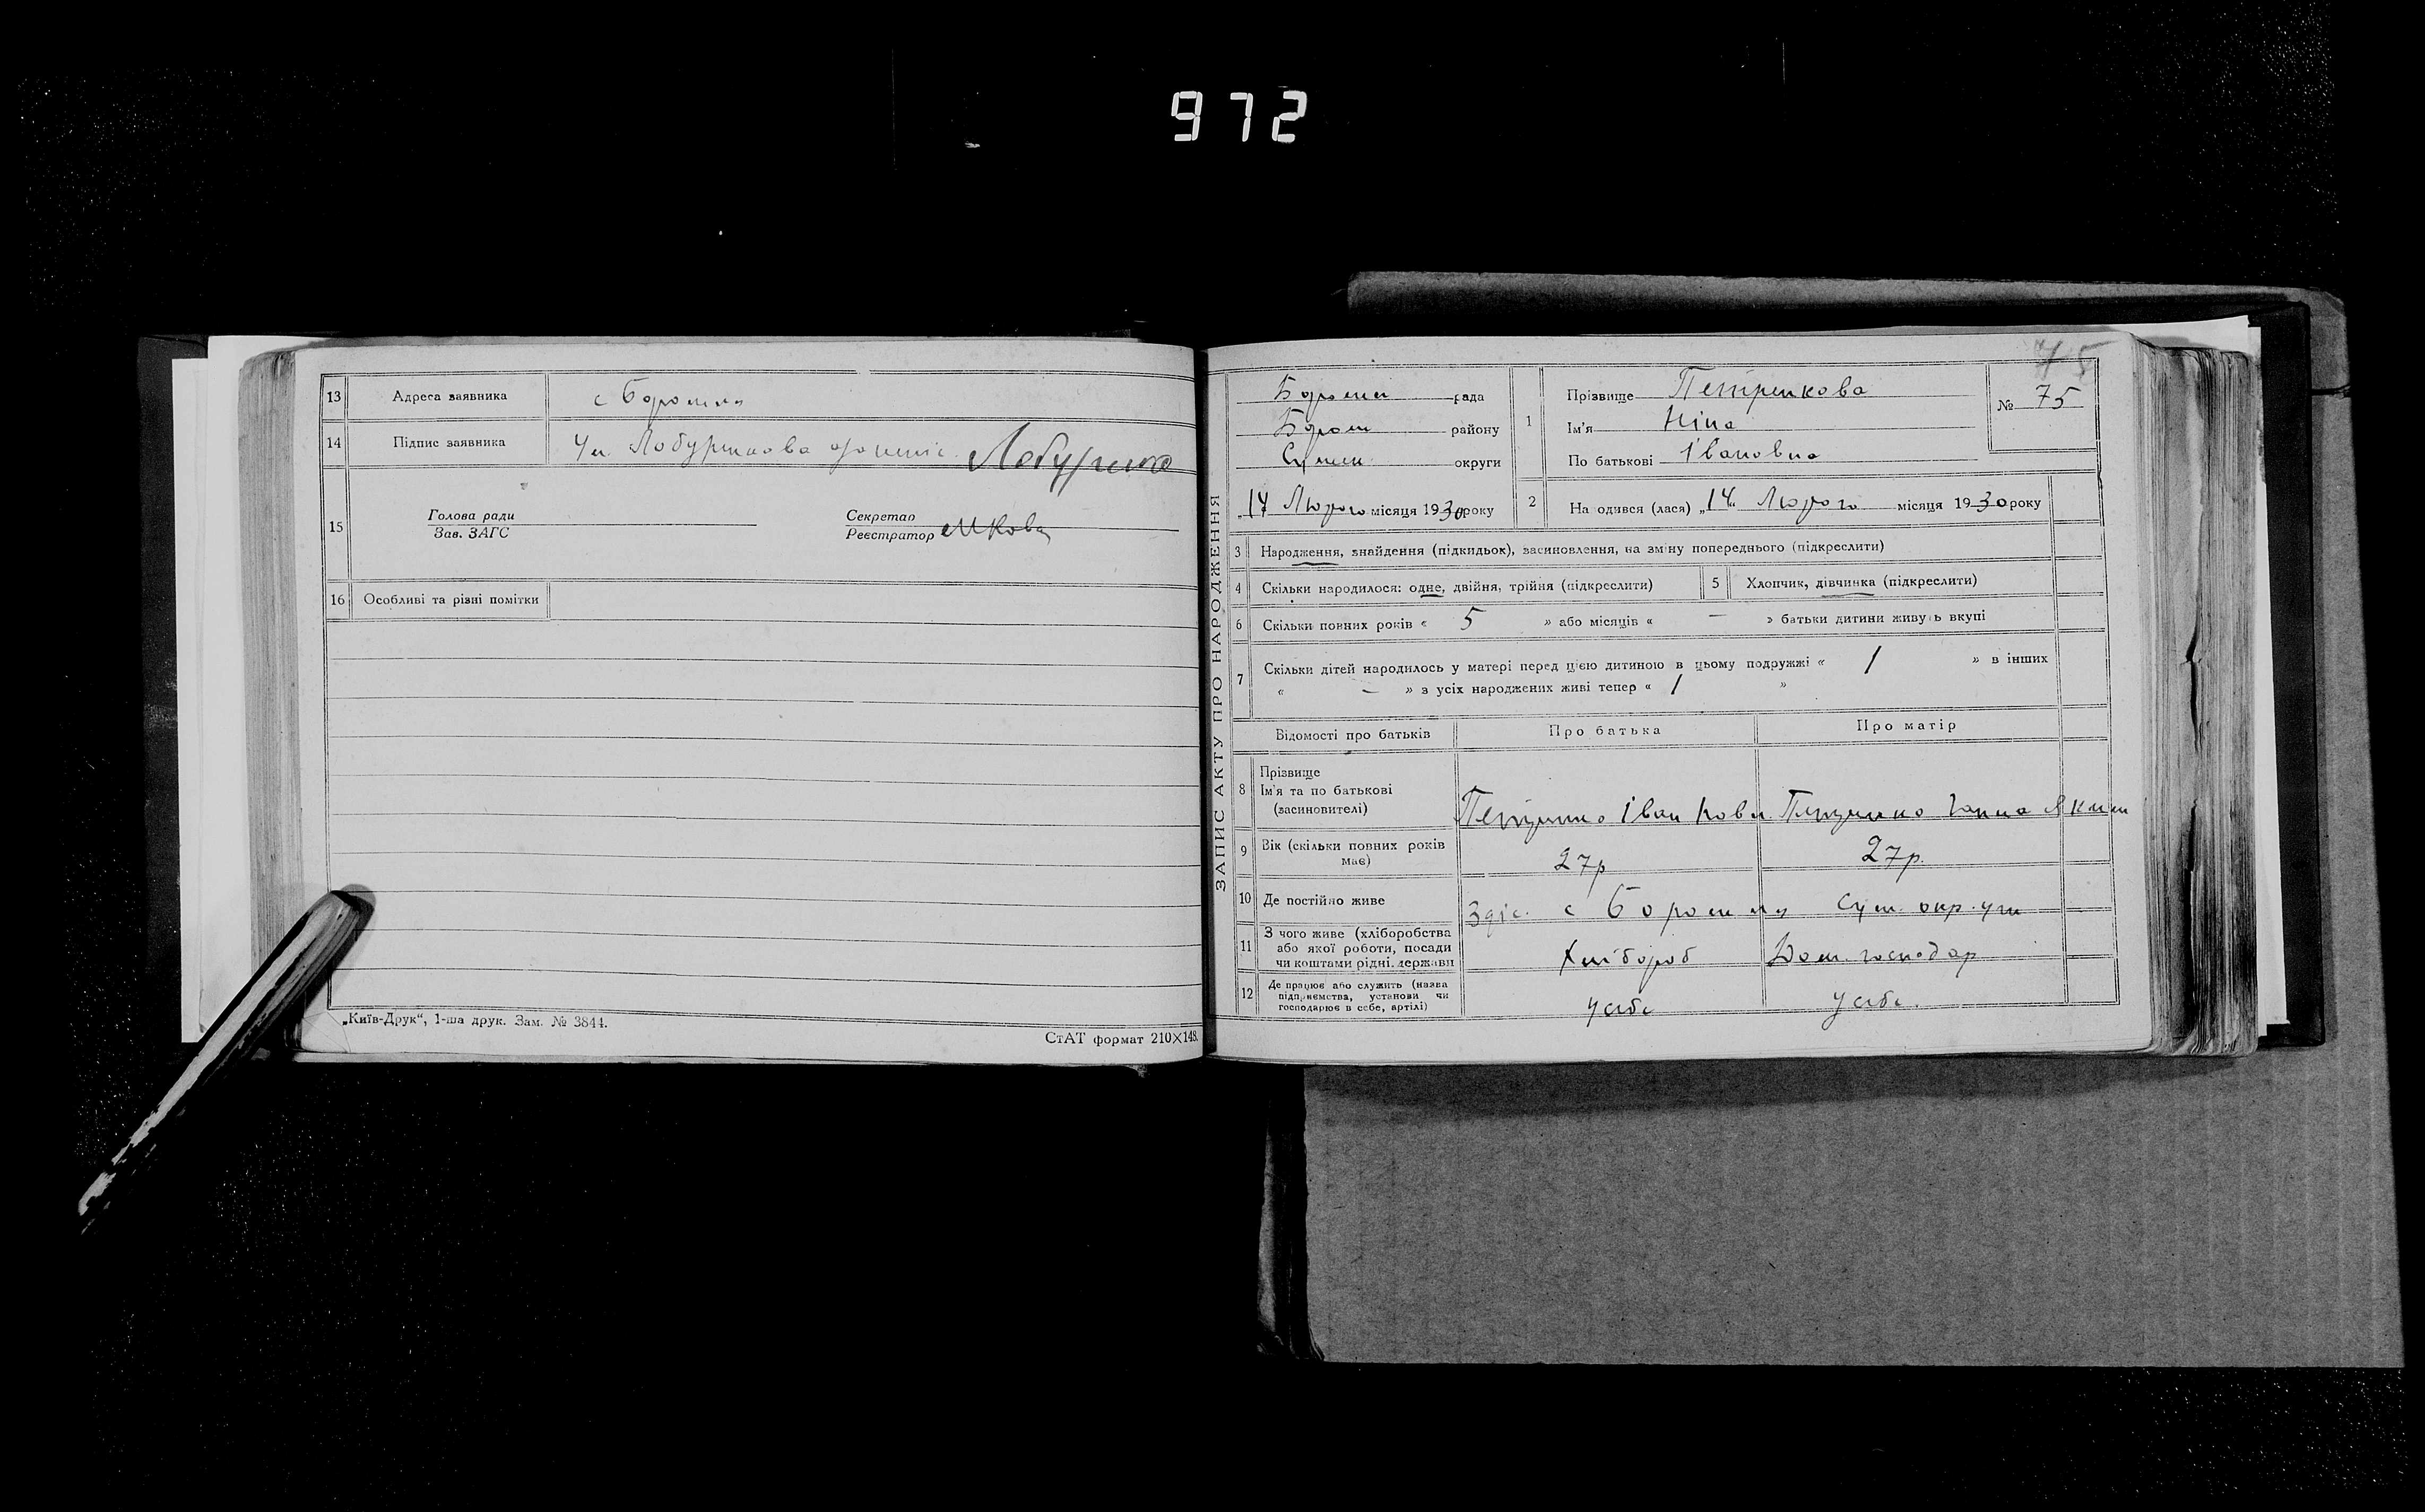 972
13 Адреса заявника с Боромля
14 Підпис заявника
15 Голова ради
Зав. ЗАГС
Секретар
Реєстратор
16 Особливі та різні помітки
„Київ-Друк“, 1-ша друк. Зам. № 3844.
СтАТ формат 210X148.
ЗАПИС АКТУ ПРО НАРОДЖЕННЯ
75
Боромл рада
Бором району
Сумськ округи
„17 Лютого місяця 1930 року
1 Прізвище Петренкова
Ім'я Ніна
По батькові Івановна
№ 75
2 На одився (лася) „14“ Лютого місяця 1930 року
3 Народження, знайдення (підкидьок), засиновлення, на зміну попереднього (підкреслити)
4 Скільки народилося: одне, двійня, трійня (підкреслити) 5 Хлопчик, дівчинка (підкреслити)
6 Скільки повних років « 5 » або місяців « — » батьки дитини живуть вкупі
7 Скільки дітей народилось у матері перед цією дитиною в цьому подружжі « 1 » в інших
« — » з усіх народжених живі тепер « 1 »
Відомості про батьків Про батька Про матір
8 Прізвище
Ім'я та по батькові
(засиновителі)
Петренко Іван Петренко Ганна
9 Вік (скільки повних років
має)
27р 27р.
10 Де постійно живе с Боромля Сум. округи
11 З чого живе (хліборобства
або якої роботи, посади
чи коштами рідні, держави
Хлібороб Дом. господар
12 Де працює або служить (назва
підприємства, установи чи
господарює в себе, артілі)
у себе у себе.